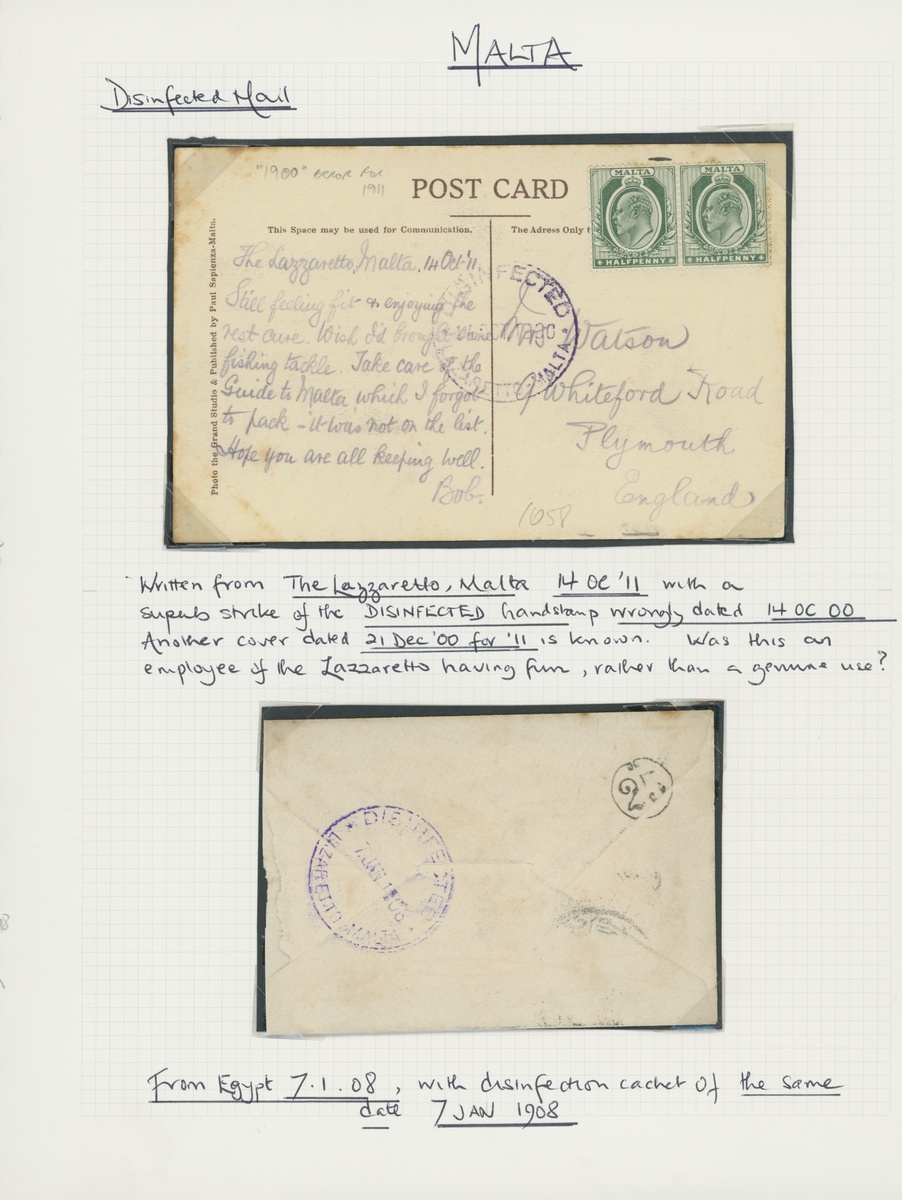 MALTA
Disinfected Mail
"1900" error for
1911
POST CARD
MALTA MALTA
HALFPENNY HALFPENNY
This Space may be used for Communication.
The Adress Only
Photo the Grand Studio & Published by Paul Sapienza-Malta.
The Lazzaretto, Malta. 14 Oct '11.
Still feeling fit & enjoying the
rest cure. Wish I'd brought some
fishing tackle. Take care of the
Guide to Malta which I forgot
to pack - it was not on the list.
Hope you are all keeping well.
Bob.
DISINFECTED
MALTA
Watson
9 Whiteford Road
Plymouth
England
1058
Written from The Lazzaretto, Malta 14 OC '11 with a
superb strike of the DISINFECTED handstamp wrongly dated 14 OC 00
Another cover dated 21 Dec '00 for '11 is known. Was this an
employee of the Lazzaretto having fun, rather than a genuine use?
DISINFECTED
7 JAN 1908
LAZARETTO MALTA
From Egypt 7.1.08, with disinfection cachet of the same
date 7 JAN 1908